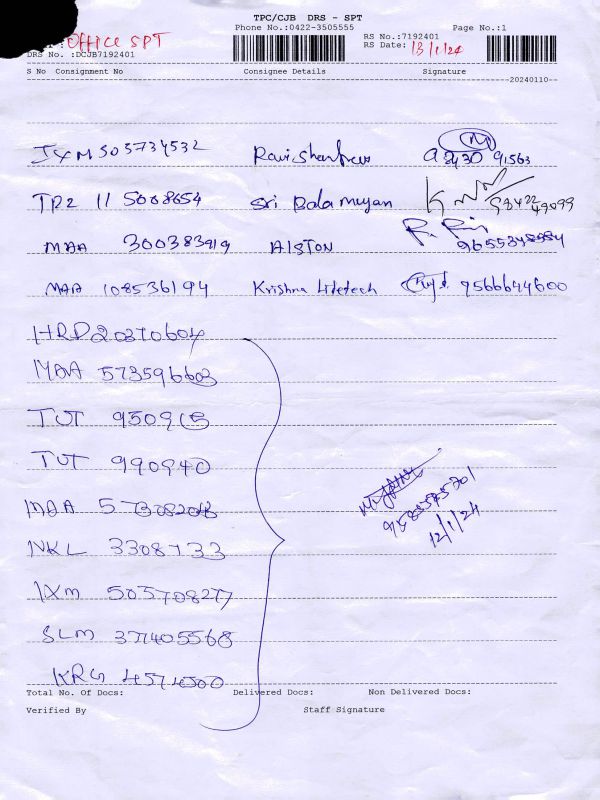 TPC/CJB DRS - SPT
Phone No.:0422-3505555 Page No.:1
: OFFICE SPT RS No.:7192401
DRS No. :DCJB7192401 RS Date: 13/1/24
S No Consignment No Consignee Details Signature
20240110
IXM 505734532 a 8430 91563
TPZ 11 5008654 Sri Balamugan 98422 49099
MAA 300383919 AISTON
MAA 108536194 Krishna Lifetech 9566644600
HRD 20370604
MAA 573596603
TUT 950915
TUT 990940
MAA
NKL 3308733
IXM 505708277
12/1/24
SLM 371405568
KRG 4574500
Total No. Of Docs: Delivered Docs: Non Delivered Docs:
Verified By Staff Signature